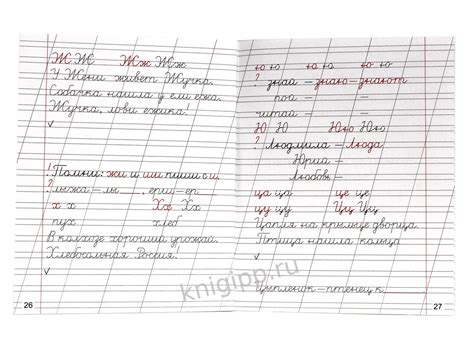 Ж Ж Жж Жж
У Жени живет Жучка.
Собачка нашла у ели ежа.
Жучка, лови ежика.
! Помни: жи и ши пиши с и.
? лыжа – лы , ерш – ер
х х Хх Хх
пух хлеб
В колхозе хороший урожай.
Хлебосольная Россия!
26
ю ю ю ю ю ю
? знай – знаю – знают
пой –
читай –
Ю Ю Юю Юю
? Людмила – Люда
Юрий –
Любовь –
ца ца це це
цу цу Цц Цц
Цапля на крыльце дворца.
Птица нашла кольца
Цыпленок – птенец к
27
knigipp.ru